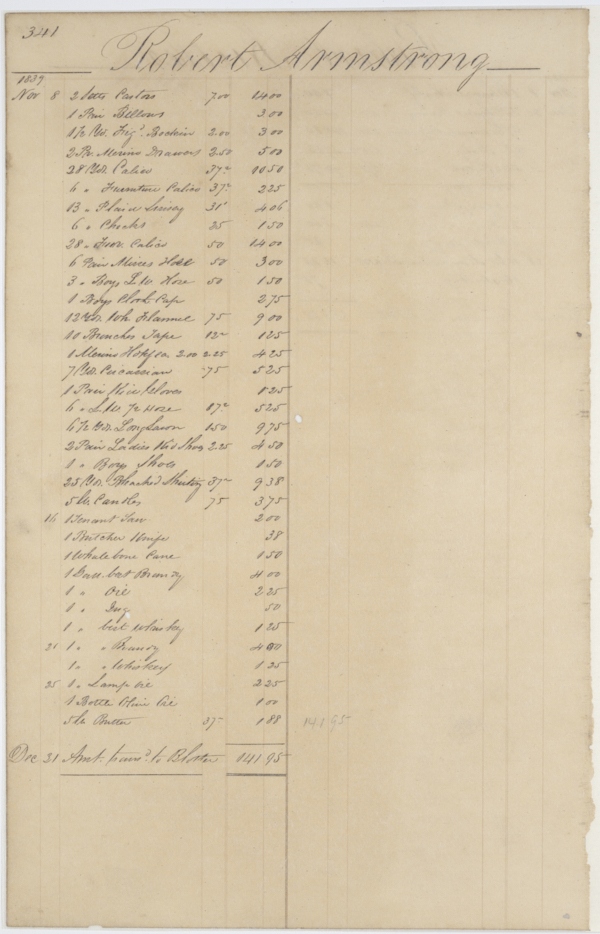 341
Robert Armstrong
1839
Nov 8 2 Setts Castors 7.00 14 00
1 Pair Bellows 3.00
1½ Yds. Frigd. Bockin 2.00 3 00
2 Pr. Merino Drawers 2.50 5 00
28 Yds. Calico 37½ 10 50
6 " Furniture Calico 37½ 2 25
13 " Plaid Linsey 31¼ 4 06
6 " Checks 25 1 50
28 " Four. Calico 50 14 00
6 Pair Misses Hose 50 3 00
3 " Boys L W Hose 50 1 50
1 Boys Cloth Cap 2 75
12 Yds. Wh Flannel 75 9 00
10 Bunches Tape 12½ 1 25
1 Merino Hdkf 2.00 2.25 4 25
7 Yds. Circassian 75 5 25
1 Pair Kid Gloves 1 25
6 " L W Hose 87½ 5 25
6½ Yds. Long Lawn 1 50 9 75
2 Pair Ladies Kid Shoes 2.25 4 50
1 " Boys Shoes 1 50
25 Yds. Bleached Shirting 37½ 9 38
5 lb. Candles 75 3 75
16 1 Tenant Saw 2 00
1 Butcher Knife 38
1 Whalebone Cane 1 50
1 Gall. best Brandy 4 00
1 " Oil 2 25
1 " Jug 50
1 " best Whiskey 1 25
21 1 " " Brandy 4 00
1 " " Whiskey 1 25
25 1 " Lamp Oil 2 25
1 Bottle Olive Oil 1 00
5 lb Butter 37½ 1 88 141.95
Dec 31 Amt. transd. to Blotter 141 95